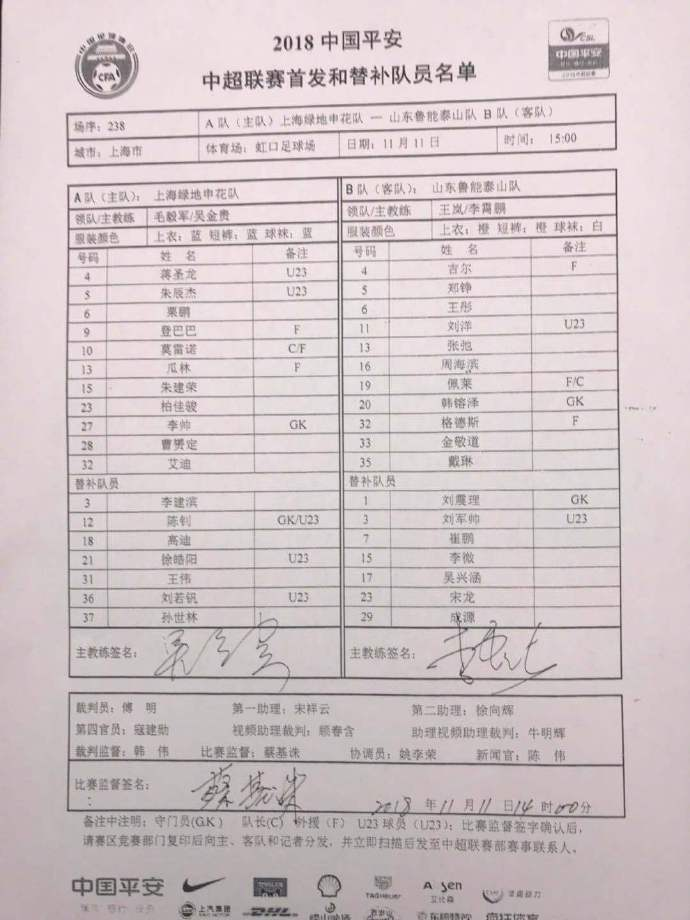 中国足球协会
CFA
2018 中国平安
CSL
中国平安
中超联赛首发和替补队员名单
场序：238 A 队（主队）上海绿地申花队 — 山东鲁能泰山队 B 队（客队）
城市：上海市 体育场：虹口足球场 日期：11 月 11 日 时间： 15:00
A 队（主队）： 上海绿地申花队 B 队（客队）： 山东鲁能泰山队
领队/主教练 毛毅军/吴金贵 领队/主教练 王岚/李霄鹏
服装颜色 上衣：蓝 短裤：蓝 球袜：蓝 服装颜色 上衣：橙 短裤：橙 球袜：白
号码 姓 名 备注 号码 姓 名 备注
4 蒋圣龙 U23 4 吉尔 F
5 朱辰杰 U23 5 郑铮
6 栗鹏 6 王彤
9 登巴巴 F 11 刘洋 U23
10 莫雷诺 C/F 13 张弛
13 瓜林 F 16 周海滨
15 朱建荣 19 佩莱 F/C
23 柏佳骏 20 韩镕泽 GK
27 李帅 GK 32 格德斯 F
28 曹赟定 33 金敬道
32 艾迪 35 戴琳
替补队员 替补队员
3 李建滨 1 刘震理 GK
12 陈钊 GK/U23 3 刘军帅 U23
18 高迪 7 崔鹏
21 徐皓阳 U23 15 李微
31 王伟 17 吴兴涵
36 刘若钒 U23 23 宋龙
37 孙世林 29 成源
主教练签名： 主教练签名：
裁判员：傅 明 第一助理：宋祥云 第二助理：徐向辉
第四官员：寇建勋 视频助理裁判：顾春含 助理视频助理裁判：牛明辉
裁判监督：韩 伟 比赛监督：蔡基洙 协调员：姚李荣 新闻官：陈 伟
比赛监督签名： 蔡基洙 2018 年 11 月 11 日 14 时 00 分
备注中注明：守门员(GK) 队长(C) 外援（F） U23 球员（U23）；比赛监督签字确认后，
请赛区竞赛部门复印后向主、客队和记者分发，并立即扫描后发至中超联赛部赛事联系人。
中国平安
保险·银行·投资
上汽集团
DHL
TAGHeuer
艾比森
东鹏特饮